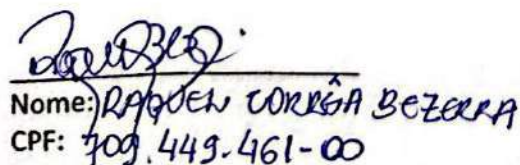 Nome: RAQUEL CORRÊA BEZERRA
CPF: 709.449.461-00